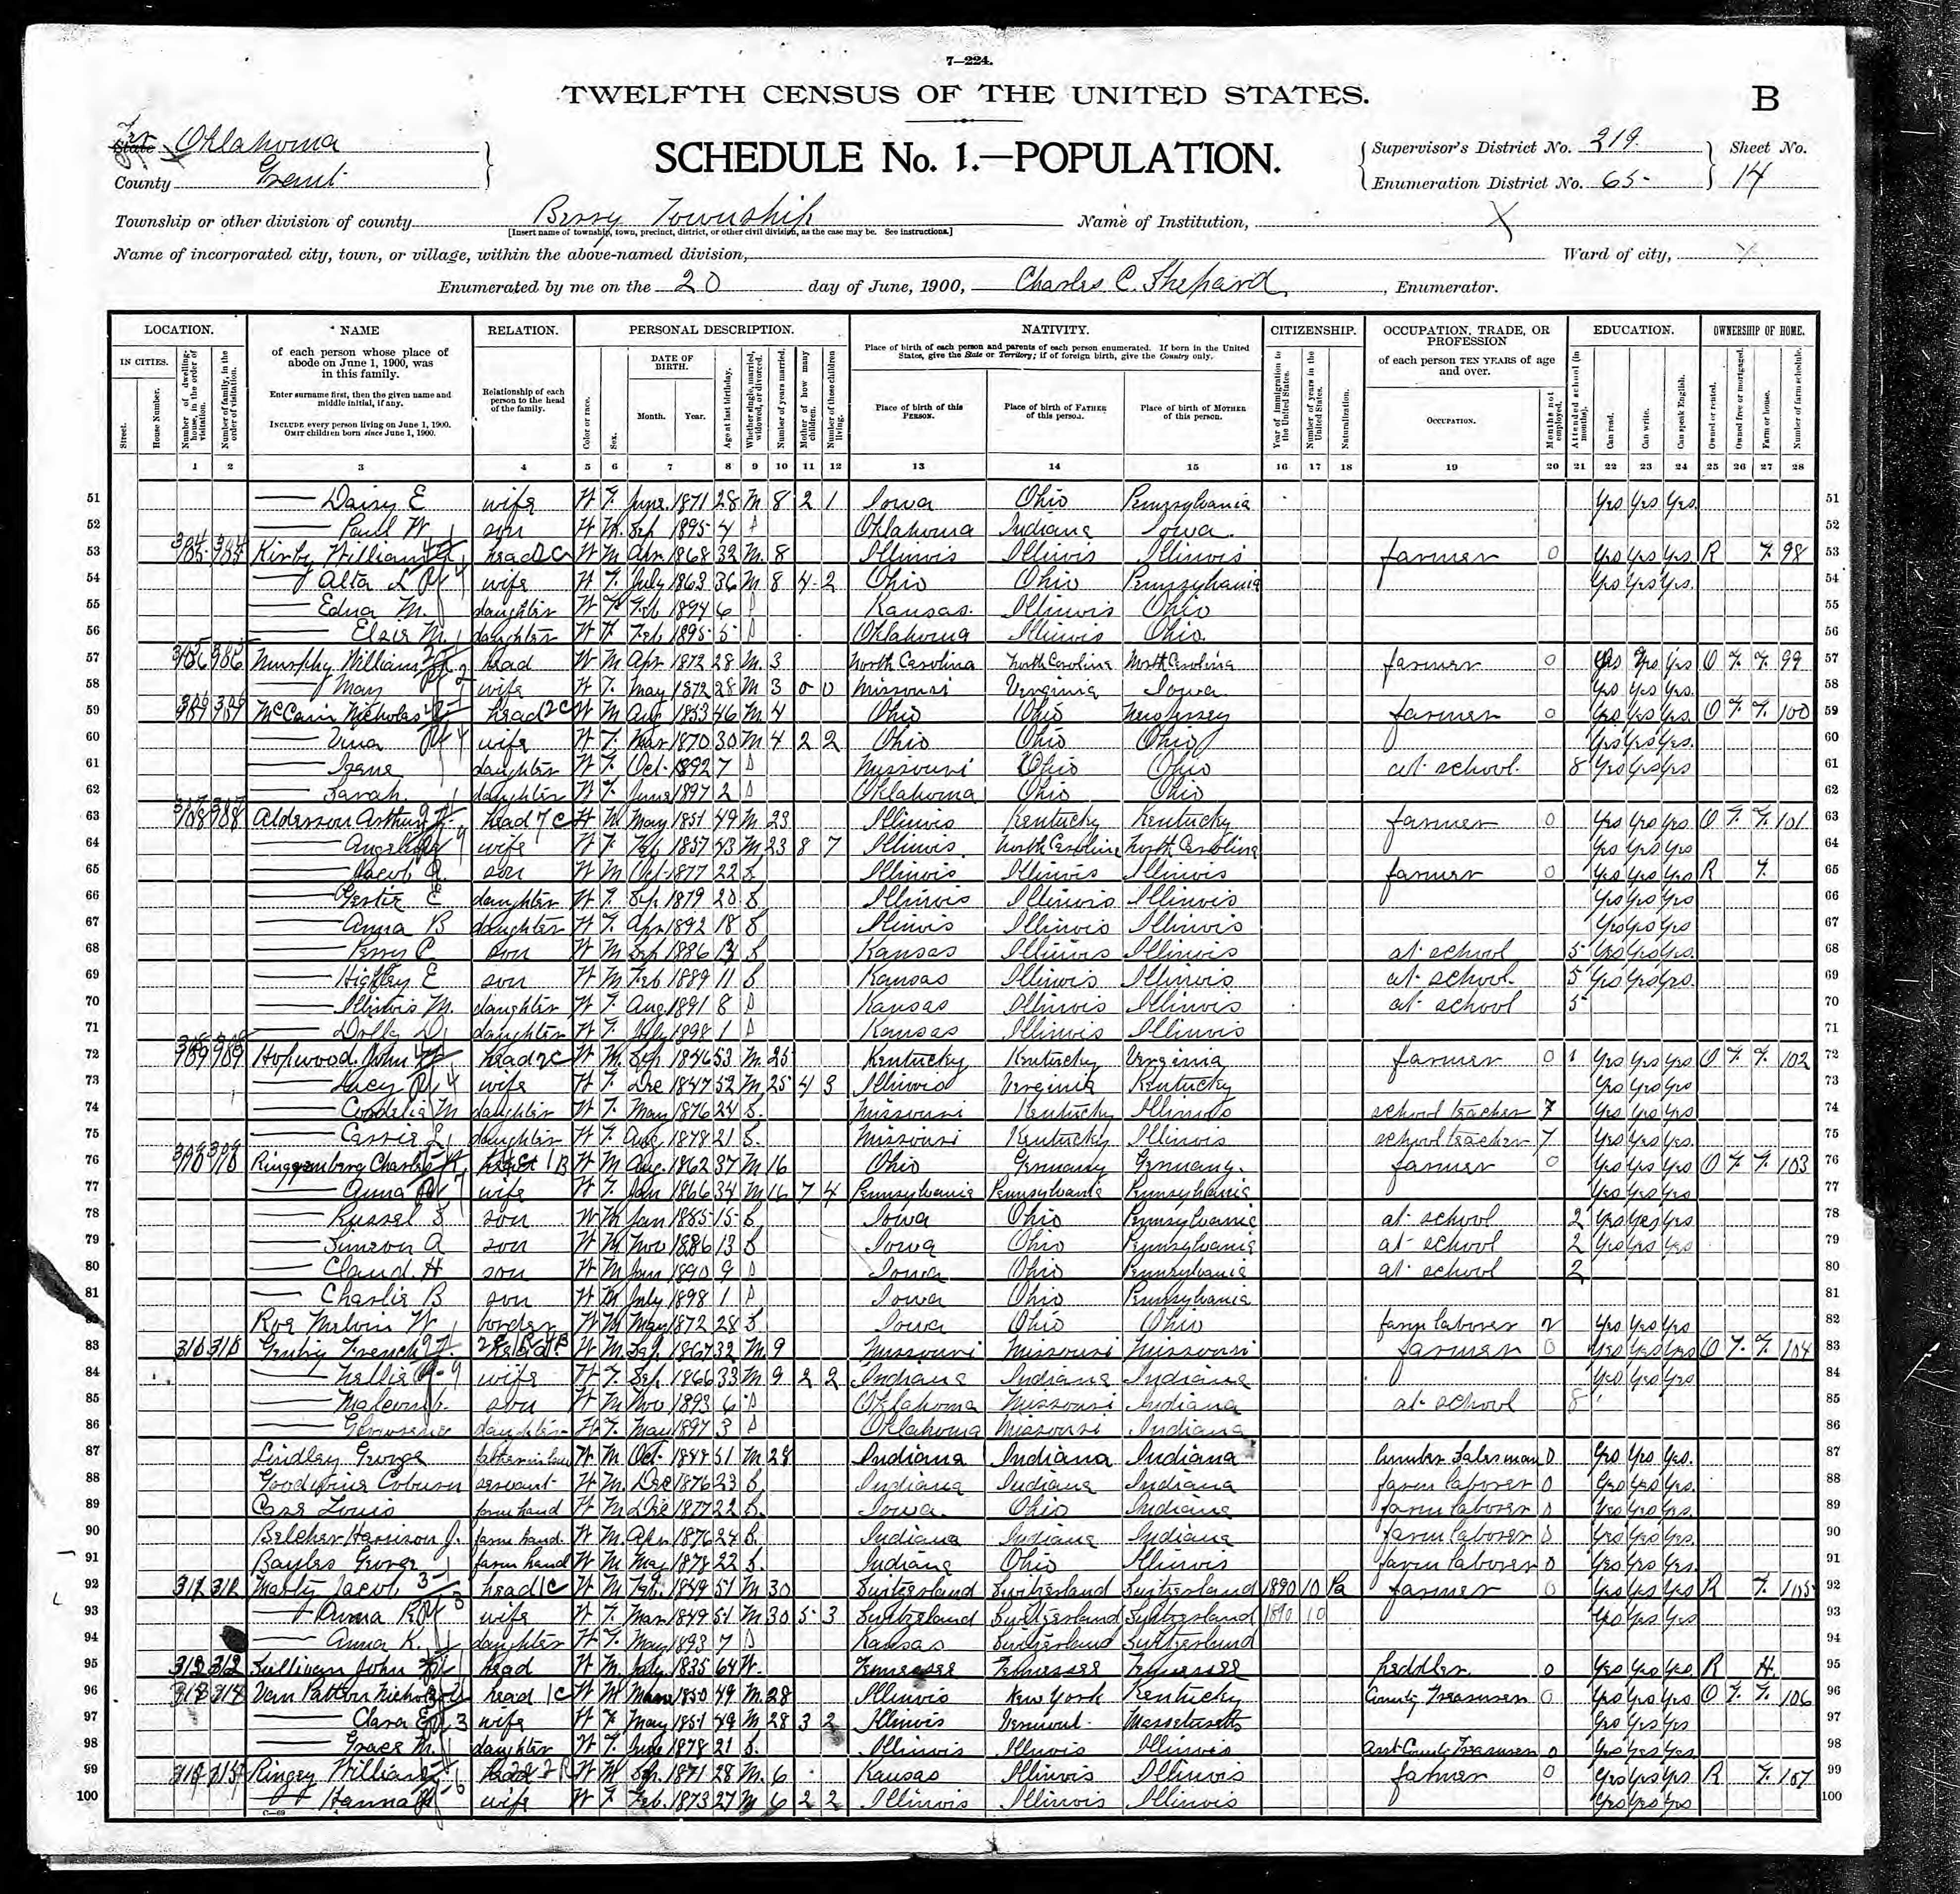 7—224.
TWELFTH CENSUS OF THE UNITED STATES.
B
State Oklahoma
County Grant
SCHEDULE No. 1.—POPULATION.
Supervisor's District No. 219.
Enumeration District No. 65
Sheet No.
14
Township or other division of county Berry Township
[Insert name of township, town, precinct, district, or other civil division, as the case may be. See instructions.]
Name of Institution, X
Name of incorporated city, town, or village, within the above-named division,
Ward of city, X
Enumerated by me on the 20 day of June, 1900, Charles C. Shepard, Enumerator.
LOCATION.
NAME
RELATION.
PERSONAL DESCRIPTION.
NATIVITY.
CITIZENSHIP.
OCCUPATION, TRADE, OR PROFESSION
EDUCATION.
OWNERSHIP OF HOME.
IN CITIES.
Street.
House Number.
Number of dwelling-house, in the order of visitation.
Number of family, in the order of visitation.
of each person whose place of abode on June 1, 1900, was in this family.
Enter surname first, then the given name and middle initial, if any.
INCLUDE every person living on June 1, 1900.
OMIT children born since June 1, 1900.
Relationship of each person to the head of the family.
Color or race.
Sex.
DATE OF BIRTH.
Month.
Year.
Age at last birthday.
Whether single, married, widowed, or divorced.
Number of years married.
Mother of how many children.
Number of these children living.
Place of birth of each person and parents of each person enumerated. If born in the United States, give the State or Territory; if of foreign birth, give the Country only.
Place of birth of this PERSON.
Place of birth of FATHER of this person.
Place of birth of MOTHER of this person.
Year of immigration to the United States.
Number of years in the United States.
Naturalization.
of each person TEN YEARS of age and over.
OCCUPATION.
Months not employed.
Attended school (in months).
Can read.
Can write.
Can speak English.
Owned or rented.
Owned free or mortgaged.
Farm or house.
Number of farm schedule.
1 2 3 4 5 6 7 8 9 10 11 12 13 14 15 16 17 18 19 20 21 22 23 24 25 26 27 28
51 Daisy E wife W F. June 1871 28 M 8 2 1 Iowa Ohio Pennsylvania Yes Yes Yes. 51
52 Paul W son W M. Sep 1895 4 S Oklahoma Indiana Iowa. 52
53 Kirby William head W M Apr 1868 32 M. 8 Illinois Illinois Illinois farmer 0 Yes Yes Yes. R F. 98 53
54 Alta L wife W F. July 1863 36 M 8 4 2 Ohio Ohio Pennsylvania Yes Yes Yes. 54
55 Edna M. daughter W F Feb 1894 6 S Kansas. Illinois Ohio 55
56 Elsie M. daughter W F. Feb 1895 5 S Oklahoma Illinois Ohio. 56
57 Murphy William head W M Apr 1872 28 M. 3 North Carolina North Carolina North Carolina farmer 0 Yes Yes Yes O F. F. 99 57
58 May wife W F. May 1872 28 M 3 0 0 Missouri Virginia Iowa Yes Yes Yes. 58
59 McCain Nicholas head W M Aug 1853 46 M. 4 Ohio Ohio New Jersey farmer 0 Yes Yes Yes. O F. F. 100 59
60 wife W F. Mar 1870 30 M 4 2 2 Ohio Ohio Ohio Yes Yes Yes. 60
61 daughter W F. Oct 1892 7 S Missouri Ohio Ohio at school. 8 Yes Yes Yes 61
62 Sarah. daughter W F. June 1897 2 S Oklahoma Ohio Ohio 62
63 Alderson Arthur head W M May 1851 49 M. 23 Illinois Kentucky Kentucky farmer 0 Yes Yes Yes O F. F. 101 63
64 wife W F. Feb 1857 43 M 23 8 7 Illinois North Carolina North Carolina Yes Yes Yes 64
65 Jacob A. son W M Oct 1877 22 S Illinois Illinois Illinois farmer 0 Yes Yes Yes R F. 65
66 daughter W F. Sep 1879 20 S Illinois Illinois Illinois Yes Yes Yes 66
67 Anna B daughter W F. Apr 1892 18 S Illinois Illinois Illinois Yes Yes Yes 67
68 Perry C son W M Sep 1886 13 S Kansas Illinois Illinois at school 5 Yes Yes Yes. 68
69 son W M Feb 1889 11 S Kansas Illinois Illinois at school. 5 Yes Yes Yes. 69
70 Illinois M. daughter W F. Aug 1891 8 S Kansas Illinois Illinois at school 5 70
71 daughter W F. July 1898 1 S Kansas Illinois Illinois 71
72 Hopwood John W head W M. Sep 1846 53 M. 25 Kentucky Kentucky Virginia farmer 0 1 Yes Yes Yes O F. F. 102 72
73 Lucy wife W F. Dec 1847 52 M 25 4 3 Illinois Virginia Kentucky Yes Yes Yes 73
74 Cordelia M daughter W F. May 1876 24 S. Missouri Kentucky Illinois school teacher 7 Yes Yes Yes 74
75 Cassie L daughter W F. Aug 1878 21 S. Missouri Kentucky Illinois school teacher 7 Yes Yes Yes. 75
76 Ringgenberg Charles head W M Aug. 1862 37 M 16 Ohio Germany Germany. farmer 0 Yes Yes Yes O F. F. 103 76
77 Anna wife W F. Jan 1866 34 M 16 7 4 Pennsylvania Pennsylvania Pennsylvania Yes Yes Yes 77
78 Russel S son W M Jan 1885 15 S Iowa Ohio Pennsylvania at school 2 Yes Yes Yes 78
79 Simeon A son W M Nov 1886 13 S Iowa Ohio Pennsylvania at school 2 Yes Yes Yes 79
80 Claud. H son W M Jan 1890 9 S Iowa Ohio Pennsylvania at school 2 80
81 Charlie B son W M July 1898 1 S Iowa Ohio Pennsylvania 81
82 Roe Melvin W border W M May 1872 28 S Iowa Ohio Ohio farm laborer 2 Yes Yes Yes 82
83 310 310 Gentry French head W M. Sep. 1867 32 M. 9 Missouri Missouri Missouri farmer 0 Yes Yes Yes O F. F. 104 83
84 Nellie wife W F. Sep. 1866 33 M 9 2 2 Indiana Indiana Indiana Yes Yes Yes 84
85 Malcomb. son W M Nov 1893 6 S Oklahoma Missouri Indiana at school 8 85
86 daughter W F. May 1897 3 S Oklahoma Missouri Indiana 86
87 Lindley George father in law W M Oct. 1848 51 M 28 Indiana Indiana Indiana lumber salesman 0 Yes Yes Yes. 87
88 Goodwine Coburn servant W M. Dec 1876 23 S. Indiana Indiana Indiana farm laborer 0 Yes Yes Yes. 88
89 Cass Louis farm hand W M Dec 1877 22 S. Iowa. Ohio Indiana farm laborer 0 Yes Yes Yes. 89
90 Belcher Harrison J. farm hand. W M. Apr. 1876 24 S. Indiana Indiana Indiana farm laborer 0 Yes Yes Yes. 90
91 Bayles Grover farm hand W M May 1878 22 S. Indiana Ohio Illinois farm laborer 0 Yes Yes Yes. 91
92 Marty Jacob head W M Feb. 1849 51 M 30 Switzerland Switzerland Switzerland 1890 10 Pa farmer 0 Yes Yes Yes R F. 105 92
93 Anna R wife W F. Mar 1849 51 M 30 5 3 Switzerland Switzerland Switzerland 1890 10 Yes Yes Yes 93
94 Anna K. daughter W F. May 1893 7 S Kansas Switzerland Switzerland 94
95 312 312 Sullivan John head W M. July 1835 64 W. Tennessee Tennessee Tennessee peddler. 0 Yes Yes Yes. R H. 95
96 Van Patten Nicholas head W M 1850 49 M. 28 Illinois New York Kentucky County Treasurer 0 Yes Yes Yes O F. F. 106 96
97 Clara E wife W F May 1851 49 M 28 3 2 Illinois Vermont. Massetusetts Yes Yes Yes 97
98 Grace M. daughter W F. June 1878 21 S. Illinois Illinois Illinois Asst County Treasurer 0 Yes Yes Yes. 98
99 Ringey William head W M Sep. 1871 28 M. 6 Kansas Illinois Illinois farmer 0 Yes Yes Yes R F. 107 99
100 Hanna wife W F. Feb. 1873 27 M 6 2 2 Illinois Illinois Illinois Yes Yes Yes 100